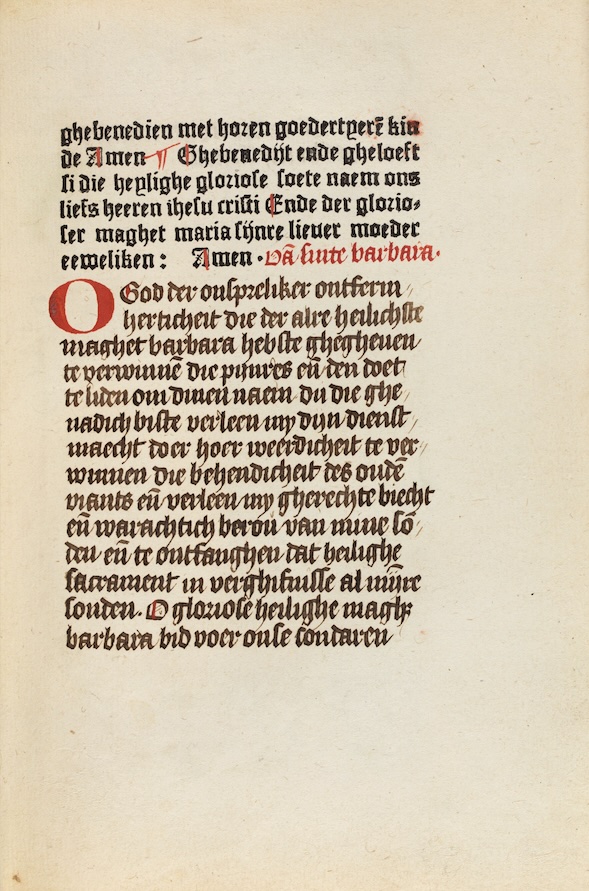 ghebenedien met horen goedertyerē kin
de Amen ¶ Ghebenedijt ende gheloeft
si die heylighe gloriose soete naem ons
liefs heeren ihesu cristi Ende der glorio-
ser maghet maria sijnre lieuer moeder
eeweliken : Amen · Vā sinte barbara·
O God der onspreliker ontferm/
herticheit die der alre heilichste
maghet barbara hebste ghegheuen
te verwinnē die pijnres eñ den doet
te liden om dinen naem du die ghe/
nadich biste verleen my dijn dienst/
maecht doer hoer weerdicheit te ver/
winnen die behendicheit des oudē
viants eñ verleen my gherechte biecht
eñ warachtich berou van mine sō/
den eñ te ontfanghen dat heilighe
sacrament in verghifnisse al mijnre
sonden. O gloriose heilighe magh
barbara bid voer onse sondaren